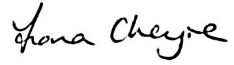 Fiona Cheyne